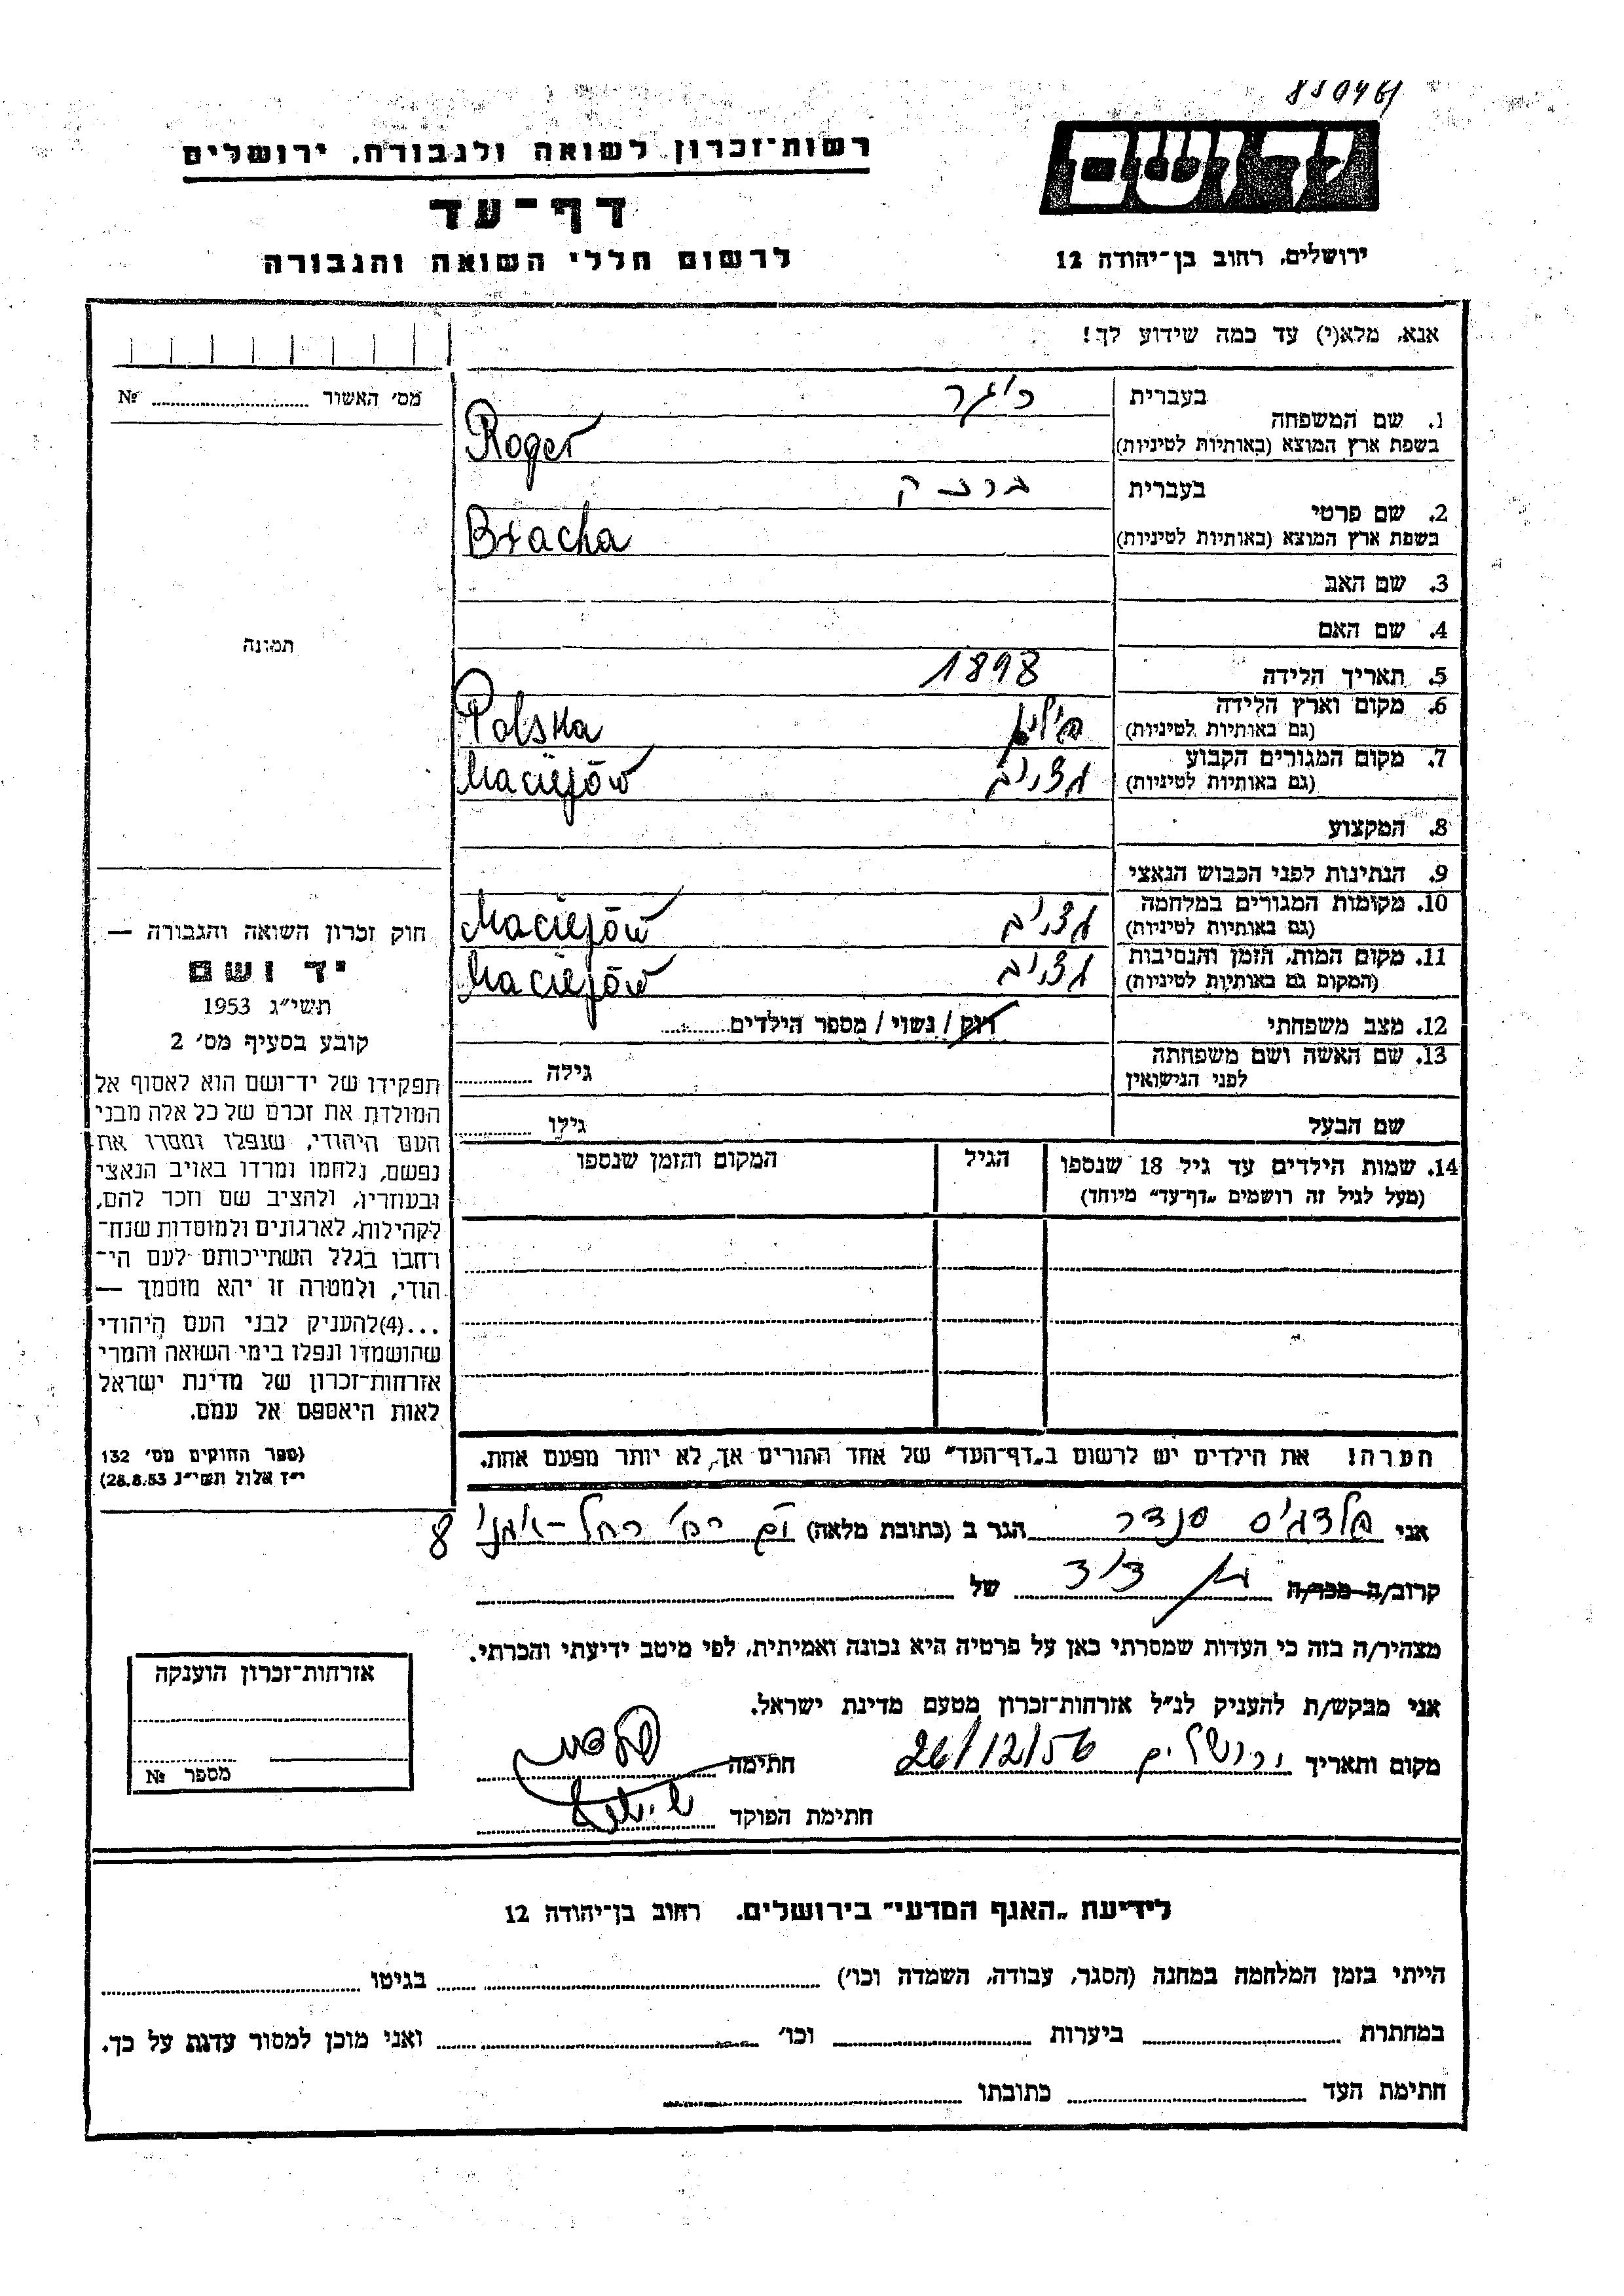 850461
יד ושם
רשות־זכרון לשואה ולגבורה, ירושלים
דף־עד
לרשום חללי השואה והגבורה
ירושלים, רחוב בן־יהודה 12
אנא, מלא(י) עד כמה שידוע לך!
מס׳ האשור № 
1. שם המשפחה
בעברית
בשפת ארץ המוצא (באותיות לטיניות)
Roger
2. שם פרטי
בעברית
ברכה
בשפת ארץ המוצא (באותיות לטיניות)
Bracha
3. שם האב
4. שם האם
תמונה
5. תאריך הלידה 1898
6. מקום וארץ הלידה
(גם באותיות לטיניות)
פולין Polska
7. מקום המגורים הקבוע
(גם באותיות לטיניות)
Maciejów
8. המקצוע
9. הנתינות לפני הכבוש הנאצי
10. מקומות המגורים במלחמה
(גם באותיות לטיניות)
Maciejów
11. מקום המות, הזמן והנסיבות
(המקום גם באותיות לטיניות)
Maciejów
12. מצב משפחתי רווק / נשוי / מספר הילדים
13. שם האשה ושם משפחתה
לפני הנישואין
גילה
שם הבעל גילו
14. שמות הילדים עד גיל 18 שנספו
(מעל לגיל זה רושמים „דף־עד״ מיוחד)
הגיל
המקום והזמן שנספו
חוק זכרון השואה והגבורה —
יד ושם
תשי״ג 1953
קובע בסעיף מס׳ 2
תפקידו של יד־ושם הוא לאסוף אל
המולדת את זכרם של כל אלה מבני
העם היהודי, שנפלו ומסרו את
נפשם, נלחמו ומרדו באויב הנאצי
ובעוזריו, ולהציב שם וזכר להם,
לקהילות, לארגונים ולמוסדות שנח־
רחבו בגלל השתייכותם לעם הי־
הודי, ולמטרה זו יהא מוסמך —
...(4)להעניק לבני העם היהודי
שהושמדו ונפלו בימי השואה והמרי
אזרחות־זכרון של מדינת ישראל
לאות היאספם אל עמם.
(ספר החוקים מס׳ 132
י״ז אלול תשי״ג 28.8.53)
הערה! את הילדים יש לרשום ב„דף־העד״ של אחד ההורים אך, לא יותר מפעם אחת.
אני סנדר הגר ב (כתובת מלאה) רח׳ רחל־אמנו 8
קרוב/ה מכר/ה בן דוד של
מצהיר/ה בזה כי העדות שמסרתי כאן על פרטיה היא נכונה ואמיתית, לפי מיטב ידיעתי והכרתי.
אני מבקש/ת להעניק לנ״ל אזרחות־זכרון מטעם מדינת ישראל.
מקום ותאריך ירושלים 26/12/56 חתימה
חתימת הפוקד
אזרחות־זכרון הוענקה
מספר №
לידיעת „האגף המדעי״ בירושלים, רחוב בן־יהודה 12
הייתי בזמן המלחמה במחנה (הסגר, עבודה, השמדה וכו׳) בגיטו
במחתרת ביערות וכו׳ ואני מוכן למסור עדות על כך.
חתימת העד כתובתו